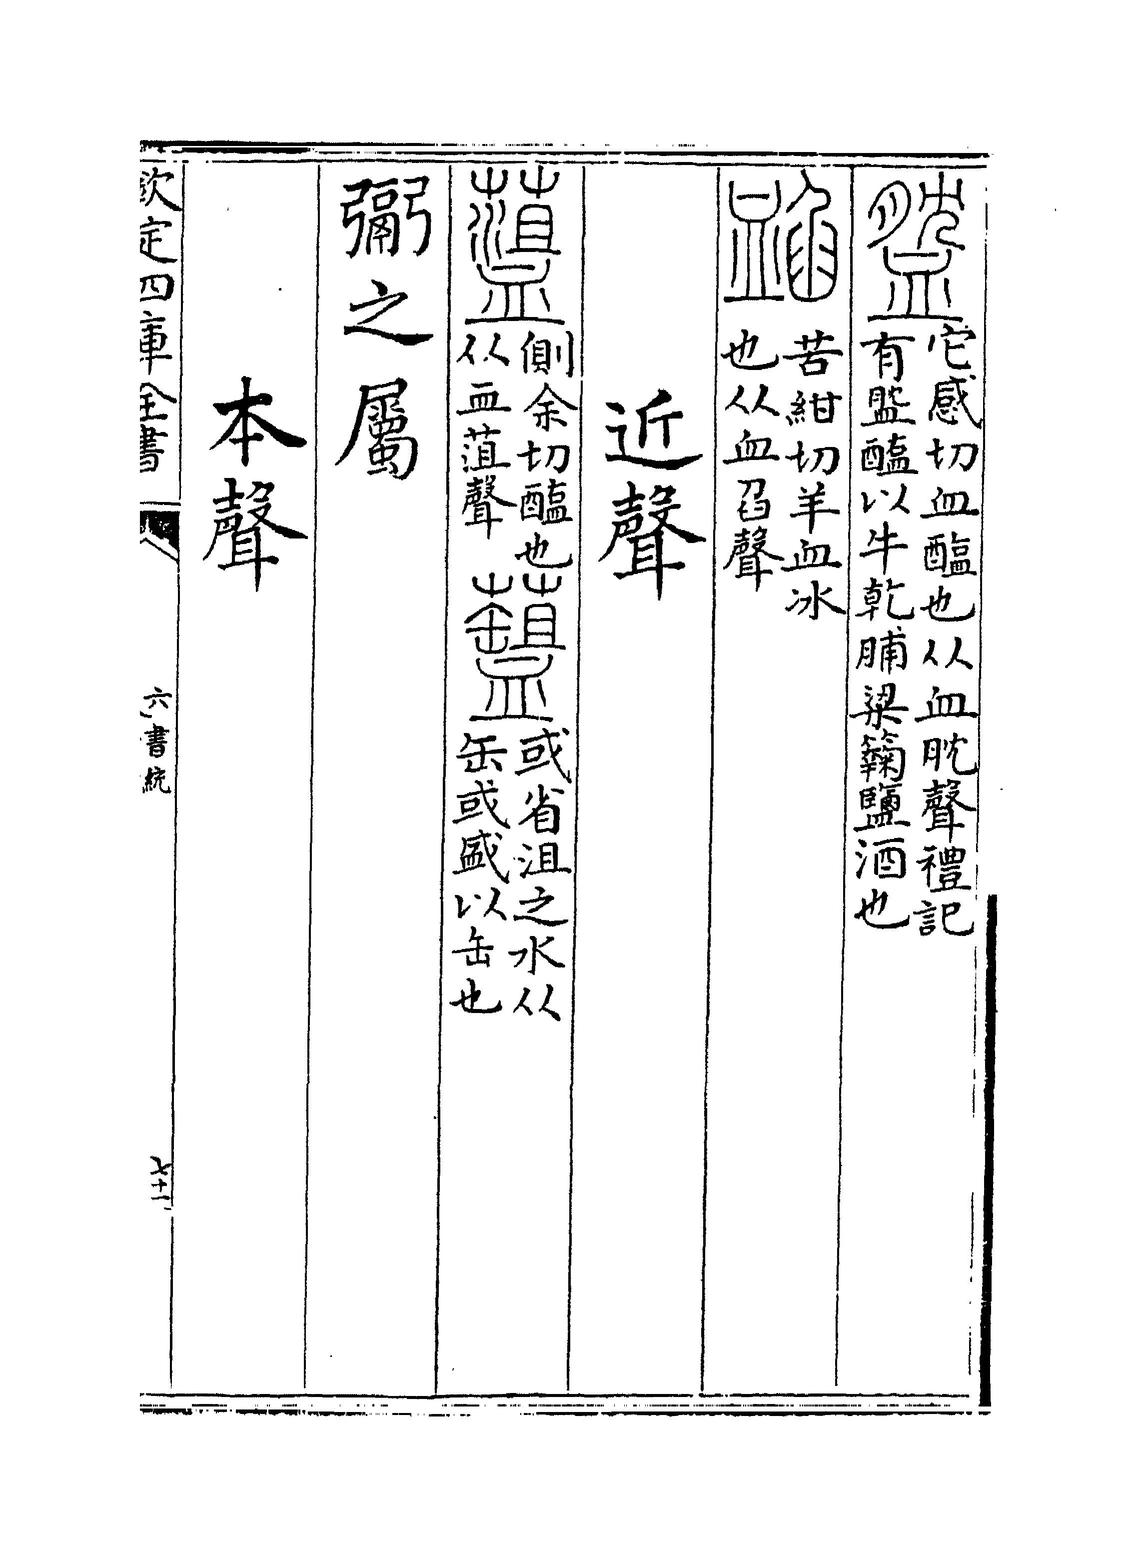 它感切血醢也从血肬聲禮記
有醢以牛乾脯粱鹽酒也
䘓
苦紺切羊血冰
也从血臽聲
近聲
側余切醢也
从血菹聲
或省沮之水从
缶或盛以缶也
䰜之屬
本聲
欽定四庫全書
六書統
七十一